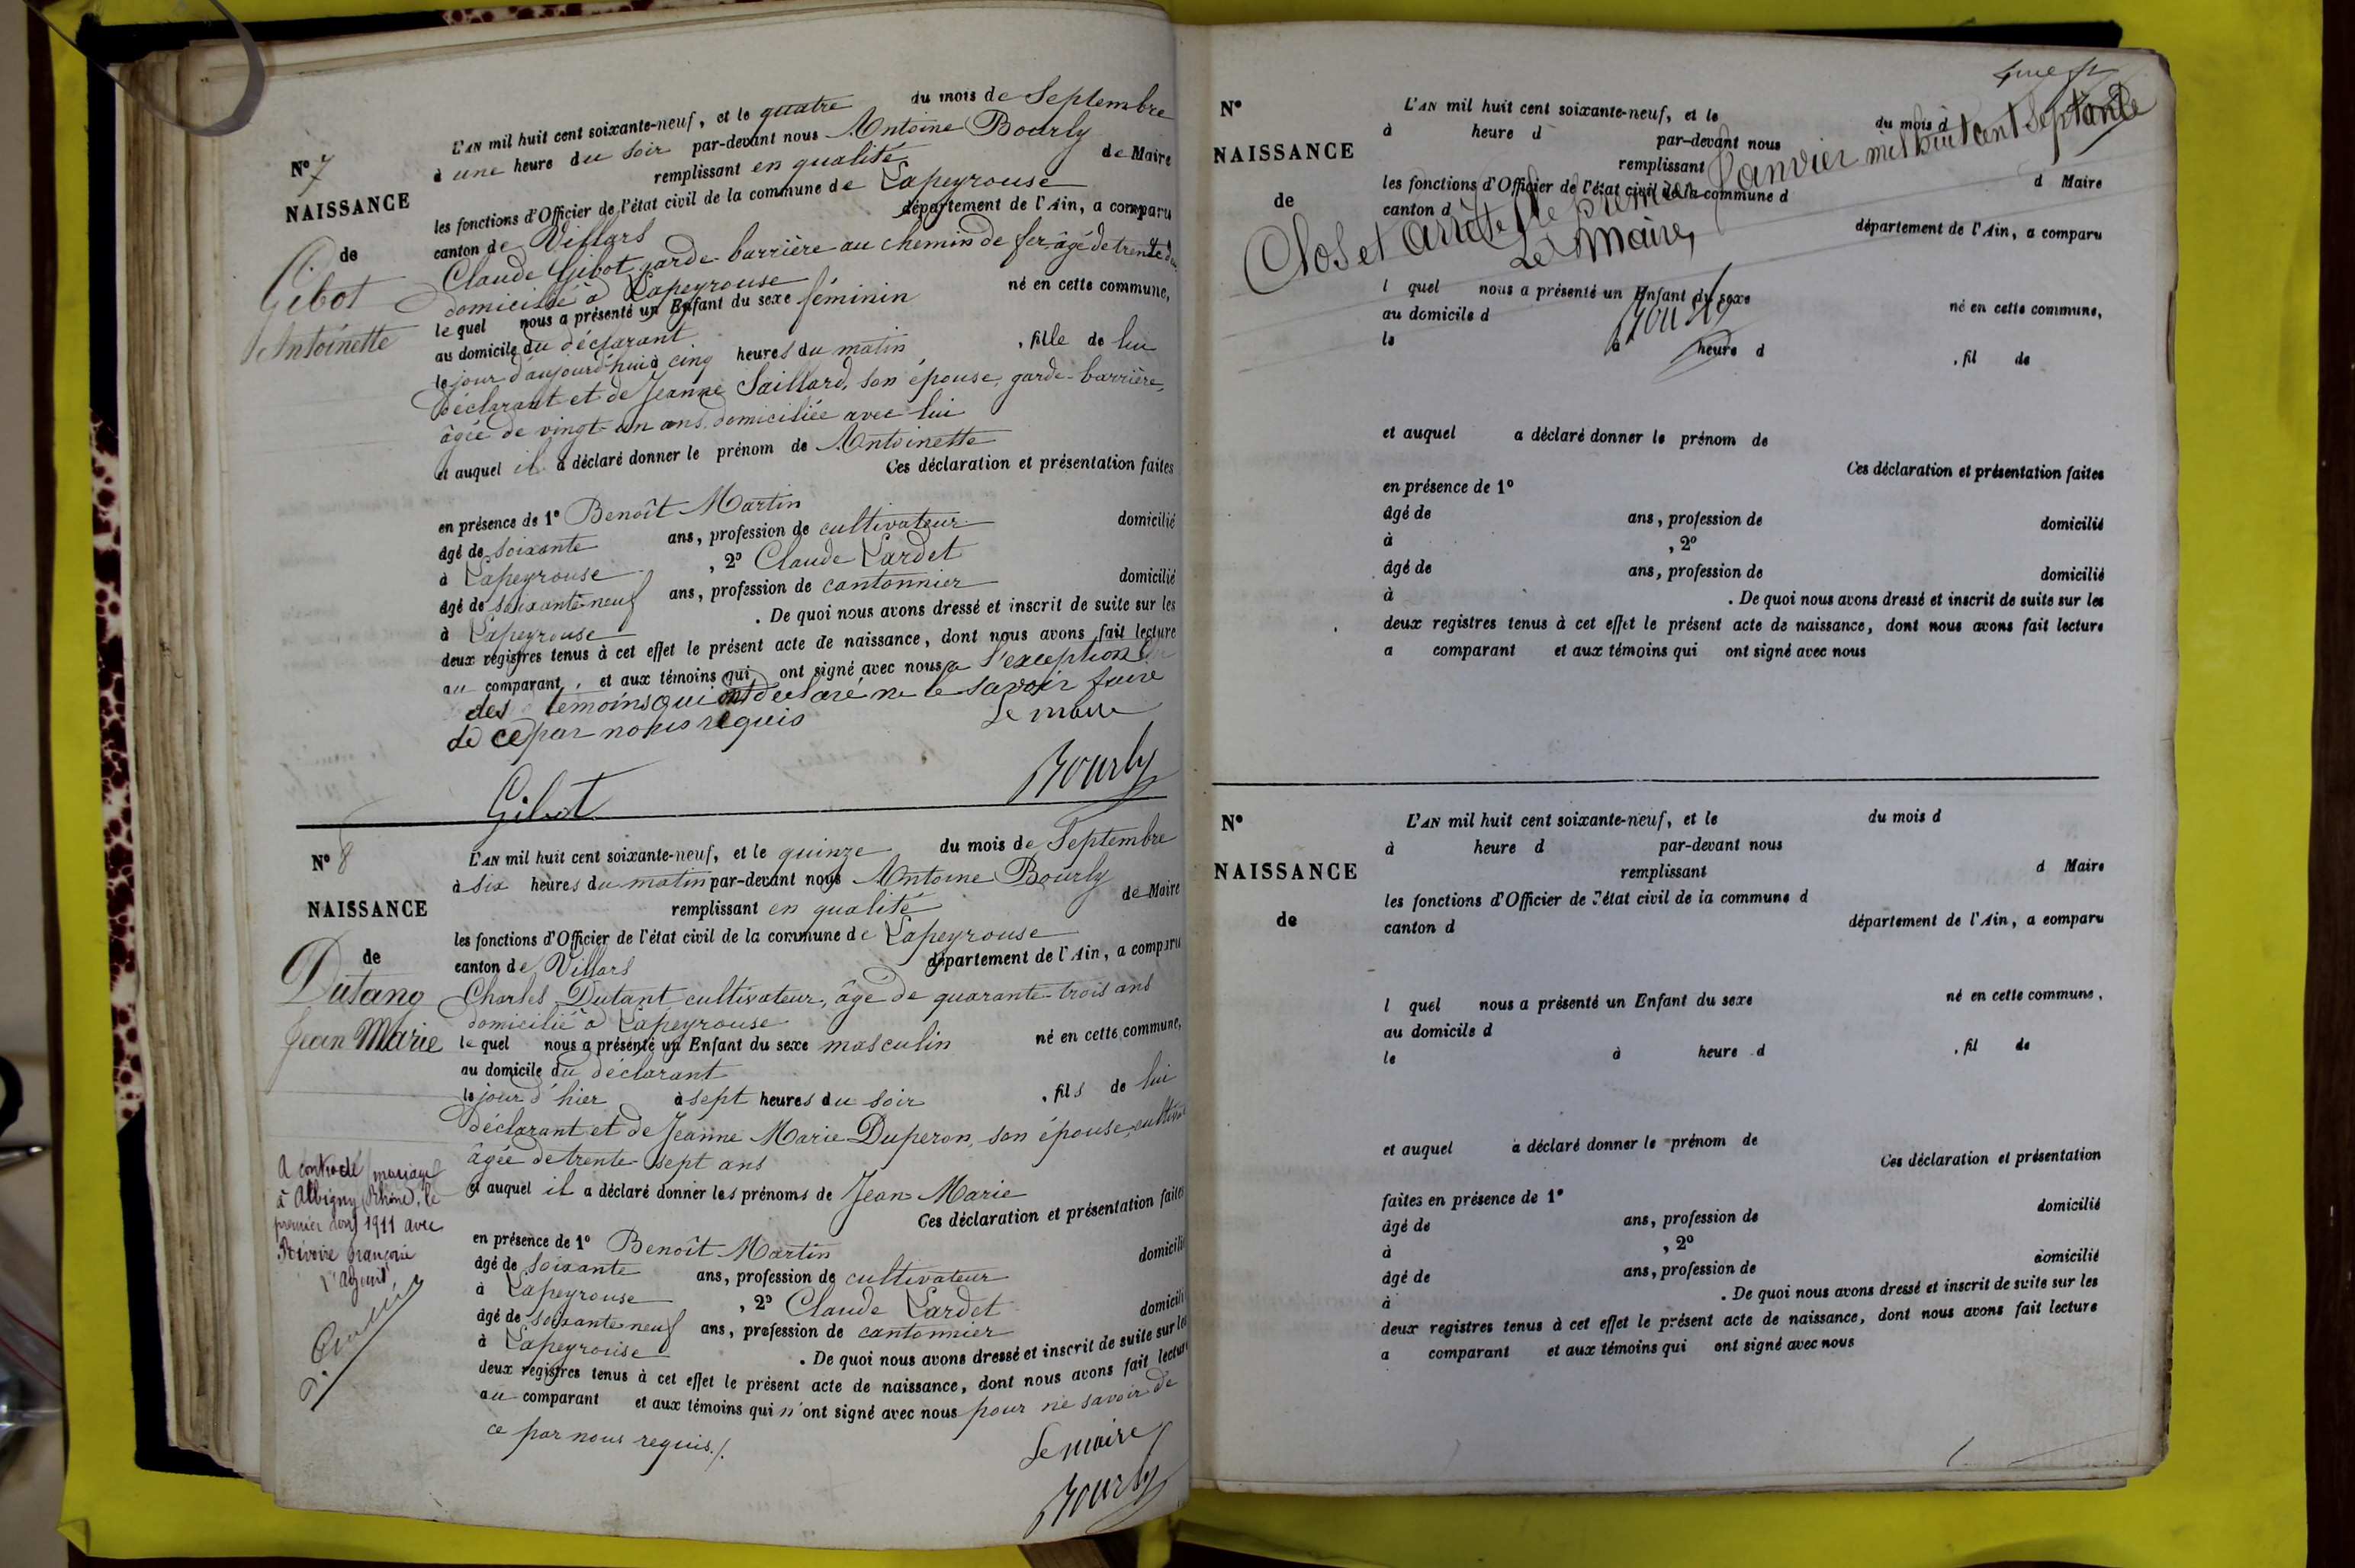 N° 7
NAISSANCE
de
Gibot
Antoinette
L'AN mil huit cent soixante-neuf, et le quatre du mois de Septembre
à une heure du soir par-devant nous Antoine Bourly
remplissant en qualité de Maire
les fonctions d'Officier de l'état civil de la commune de Lapeyrouse
canton de Villars département de l'Ain, a comparu
Claude Gibot garde-barrière au chemin de fer âgé de trente
domicilié à Lapeyrouse
le quel nous a présenté un Enfant du sexe féminin né en cette commune,
au domicile du déclarant
le jour d'aujourd'hui à cinq heures du matin , fille de lui
déclarant et de Jeanne Saillard, son épouse, garde-barrière,
âgée de vingt-un ans, domiciliée avec lui
et auquel il a déclaré donner le prénom de Antoinette
Ces déclaration et présentation faites
en présence de 1° Benoît Martin
âgé de soixante ans, profession de cultivateur domicilié
à Lapeyrouse , 2° Claude Lardet
âgé de soixante-neuf ans, profession de cantonnier domicilié
à Lapeyrouse . De quoi nous avons dressé et inscrit de suite sur les
deux registres tenus à cet effet le présent acte de naissance, dont nous avons fait lecture
au comparant, et aux témoins qui ont signé avec nous a l'exception
des temoins qui ont declaré ne le savoir faire
de ce par nous requis Le maire
Gibot Bourly
N° 8
NAISSANCE
de
Dutang
Jean Marie
L'AN mil huit cent soixante-neuf, et le quinze du mois de Septembre
à six heures du matin par-devant nous Antoine Bourly
remplissant en qualité de Maire
les fonctions d'Officier de l'état civil de la commune de Lapeyrouse
canton de Villars département de l'Ain, a comparu
Charles Dutant cultivateur, âgé de quarante-trois ans
domicilié à Lapeyrouse
le quel nous a présenté un Enfant du sexe masculin né en cette commune,
au domicile du déclarant
le jour d'hier à sept heures du soir , fils de lui
déclarant et de Jeanne Marie Duperon, son épouse,
âgée de trente-sept ans
et auquel il a déclaré donner les prénoms de Jean-Marie
Ces déclaration et présentation faites
en présence de 1° Benoît Martin
âgé de soixante ans, profession de cultivateur domicilié
à Lapeyrouse , 2° Claude Lardet
âgé de soixante neuf ans, profession de cantonnier domicili
à Lapeyrouse . De quoi nous avons dressé et inscrit de suite sur les
deux registres tenus à cet effet le présent acte de naissance, dont nous avons fait lecture
au comparant et aux témoins qui n'ont signé avec nous pour ne savoir de
ce par nous requis./.
Le maire
Bourly
A contracté mariage
à Albigny (Rhône), le
premier 1911 avec
Rivoire Françoise
L'Adjoint,
N° L'AN mil huit cent soixante-neuf, et le du mois d
NAISSANCE à heure d par-devant nous
remplissant d Maire
de les fonctions d'Officier de l'état civil de la commune d
canton d département de l'Ain, a comparu
Clos et arrêté le premier Janvier mil huit cent septante
Le Maire,
Bourly
l quel nous a présenté un Enfant du sexe né en cette commune,
au domicile d
le à heure d , fil de
et auquel a déclaré donner le prénom de
Ces déclaration et présentation faites
en présence de 1°
âgé de ans, profession de domicilié
à , 2°
âgé de ans, profession de domicilié
à . De quoi nous avons dressé et inscrit de suite sur les
deux registres tenus à cet effet le présent acte de naissance, dont nous avons fait lecture
a comparant et aux témoins qui ont signé avec nous
N° L'AN mil huit cent soixante-neuf, et le du mois d
à heure d par-devant nous
NAISSANCE remplissant d Maire
les fonctions d'Officier de l'état civil de la commune d
de canton d département de l'Ain, a comparu
l quel nous a présenté un Enfant du sexe né en cette commune,
au domicile d
le à heure d , fil de
et auquel a déclaré donner le prénom de
Ces déclaration et présentation
faites en présence de 1°
âgé de ans, profession de domicilié
à , 2°
âgé de ans, profession de domicilié
à . De quoi nous avons dressé et inscrit de suite sur les
deux registres tenus à cet effet le présent acte de naissance, dont nous avons fait lecture
a comparant et aux témoins qui ont signé avec nous